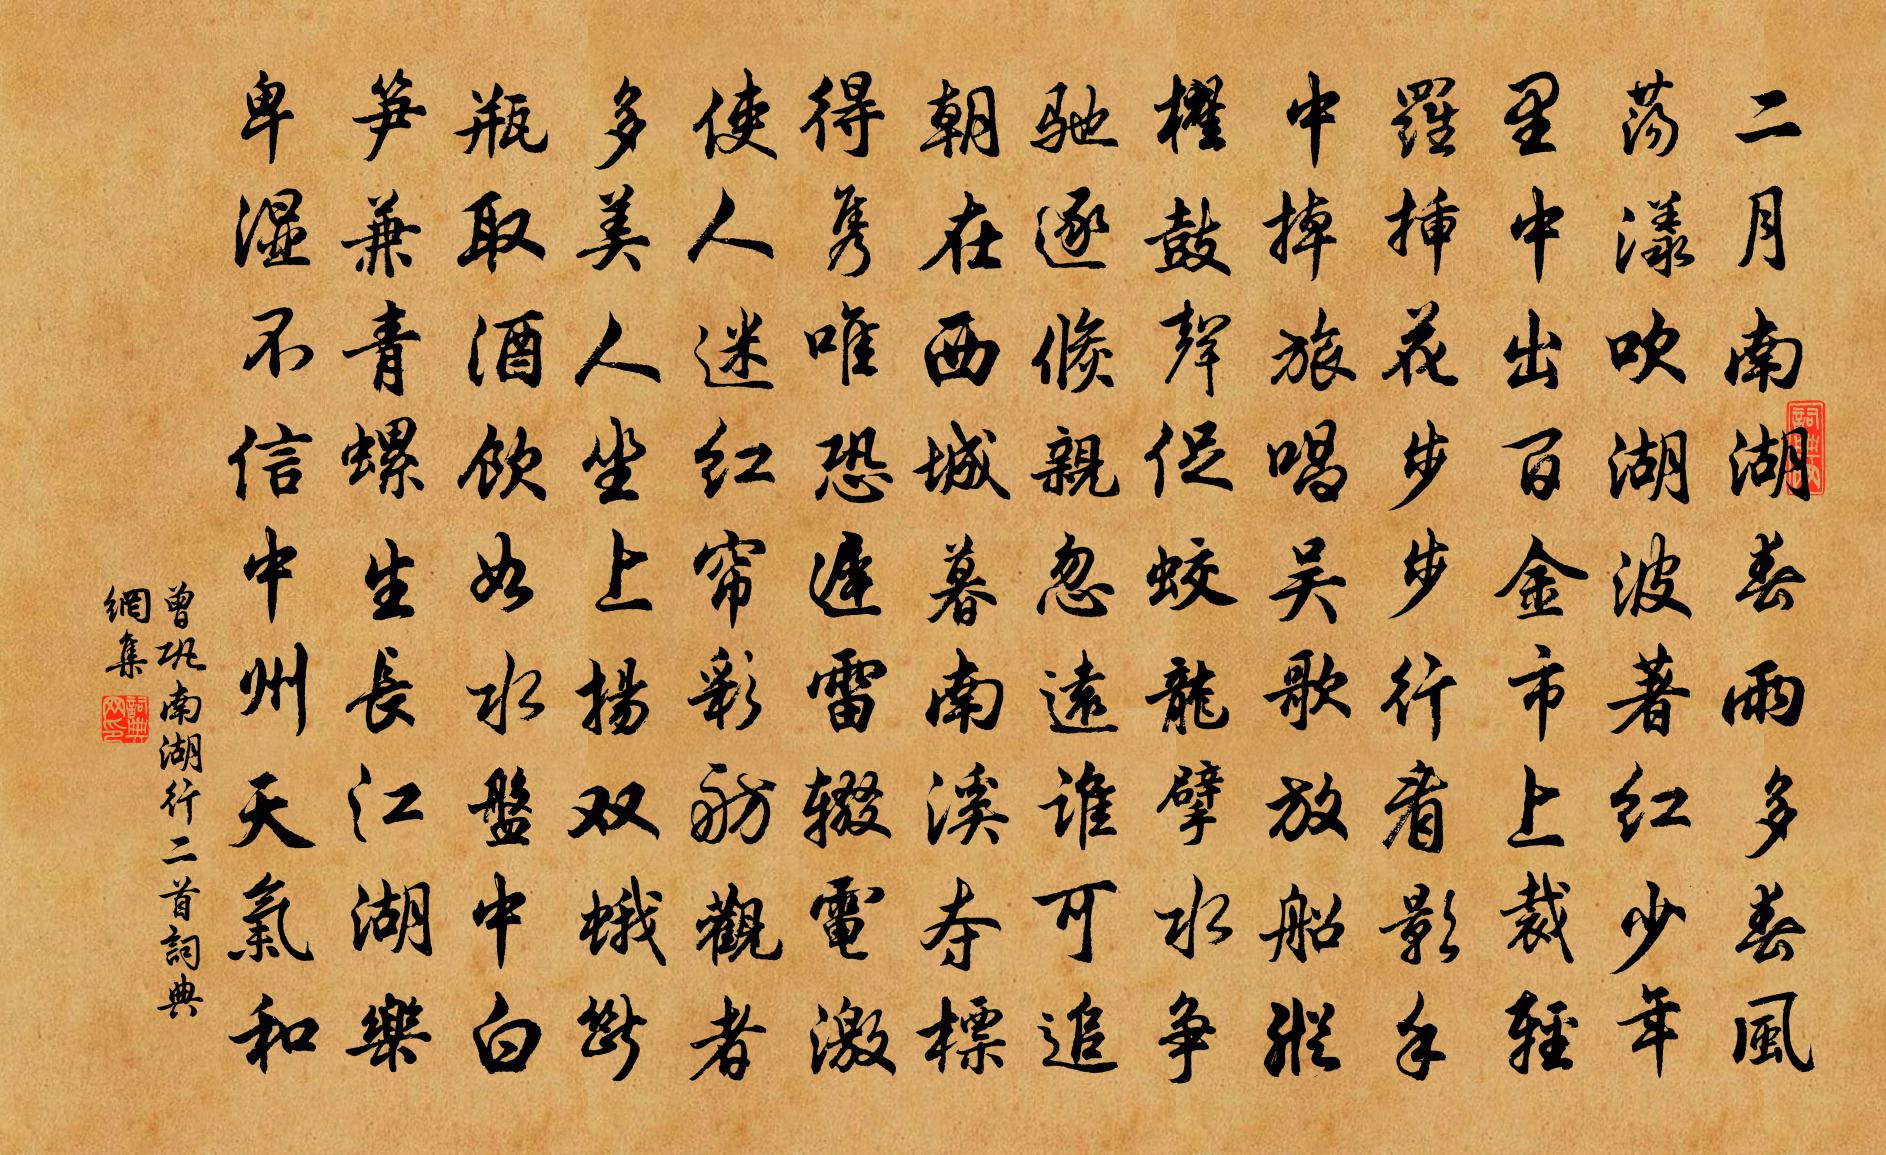 二月南湖春雨多春風
荡漾吹湖波著红少年
里中出百金市上裁輕
羅插花步步行看影手
中掉旅唱吴歌放船縱
櫂鼓聲促蛟龍擘水争
馳逐倏親忽遠谁可追
朝在西城暮南溪夺標
得隽唯恐遲雷辍電激
使人迷红帘彩舫觀者
多美人坐上揚双蛾斷
瓶取酒飲如水盤中白
笋兼青螺生長江湖樂
卑濕不信中州天氣和
曾巩南湖行二首詞典
網集